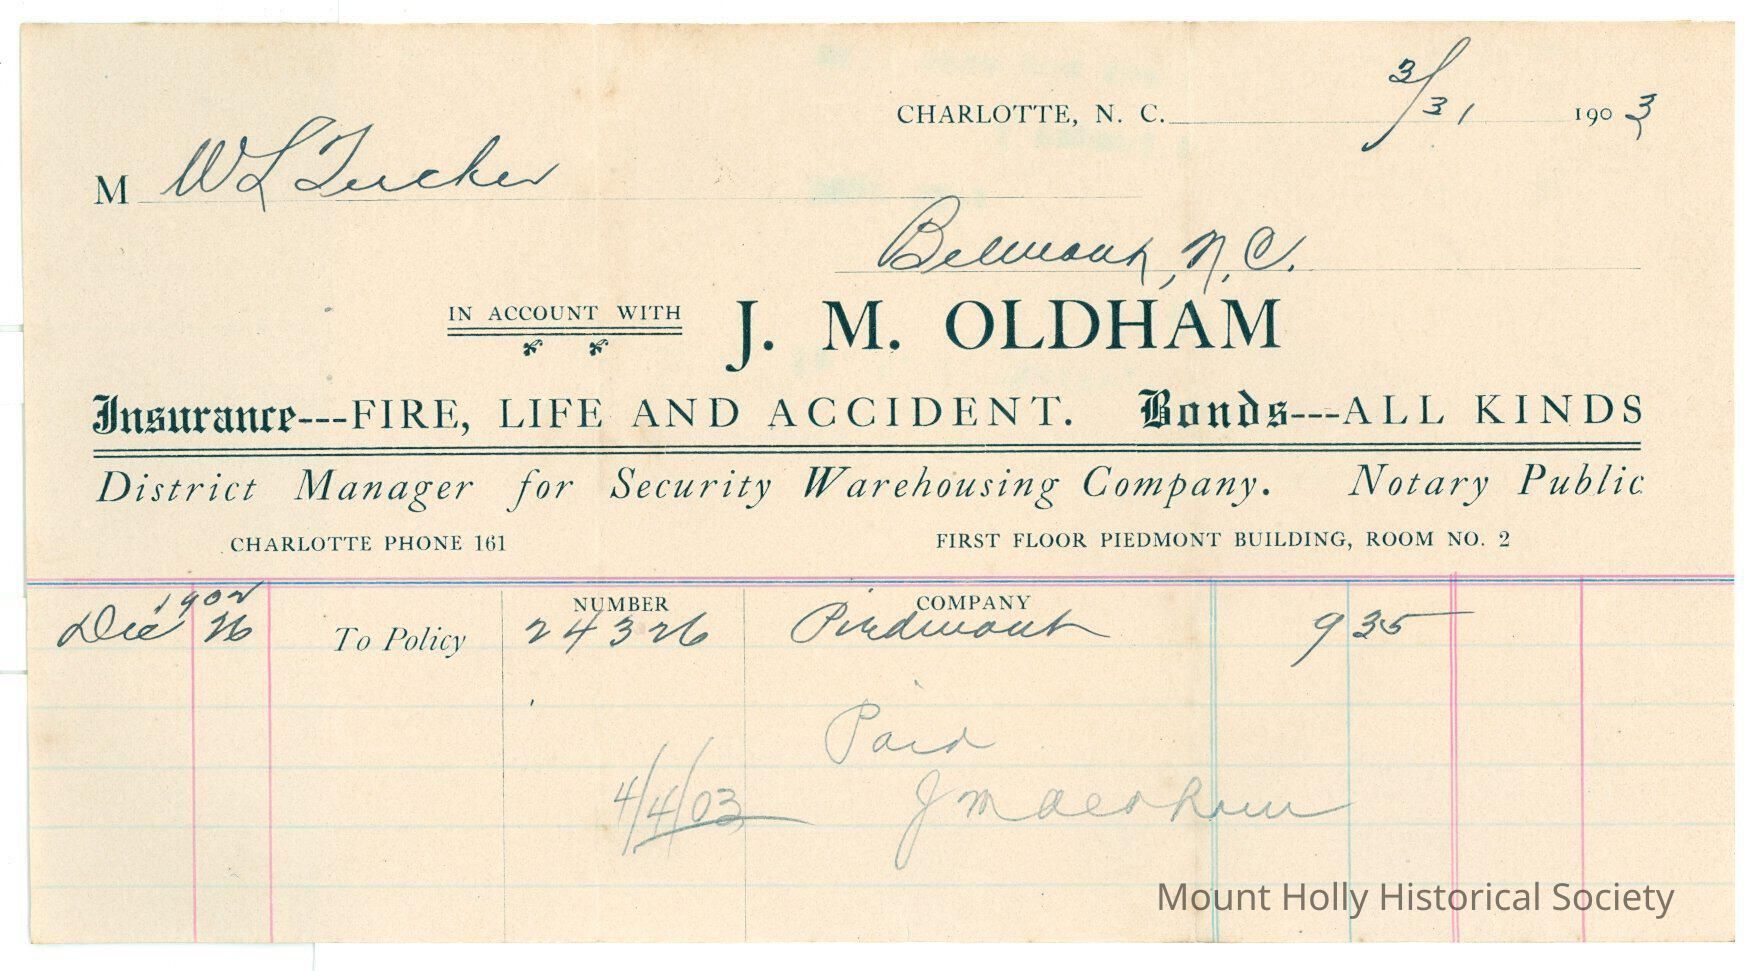 CHARLOTTE, N. C. 3/31 1903
M W L Tucker
Belmont, N. C.
IN ACCOUNT WITH J. M. OLDHAM
Insurance---FIRE, LIFE AND ACCIDENT. Bonds---ALL KINDS
District Manager for Security Warehousing Company. Notary Public
CHARLOTTE PHONE 161 FIRST FLOOR PIEDMONT BUILDING, ROOM NO. 2
1902 NUMBER COMPANY
Dec 26 To Policy 24326 Piedmont 9 35
Paid
4/4/03 J M Oldham
Mount Holly Historical Society